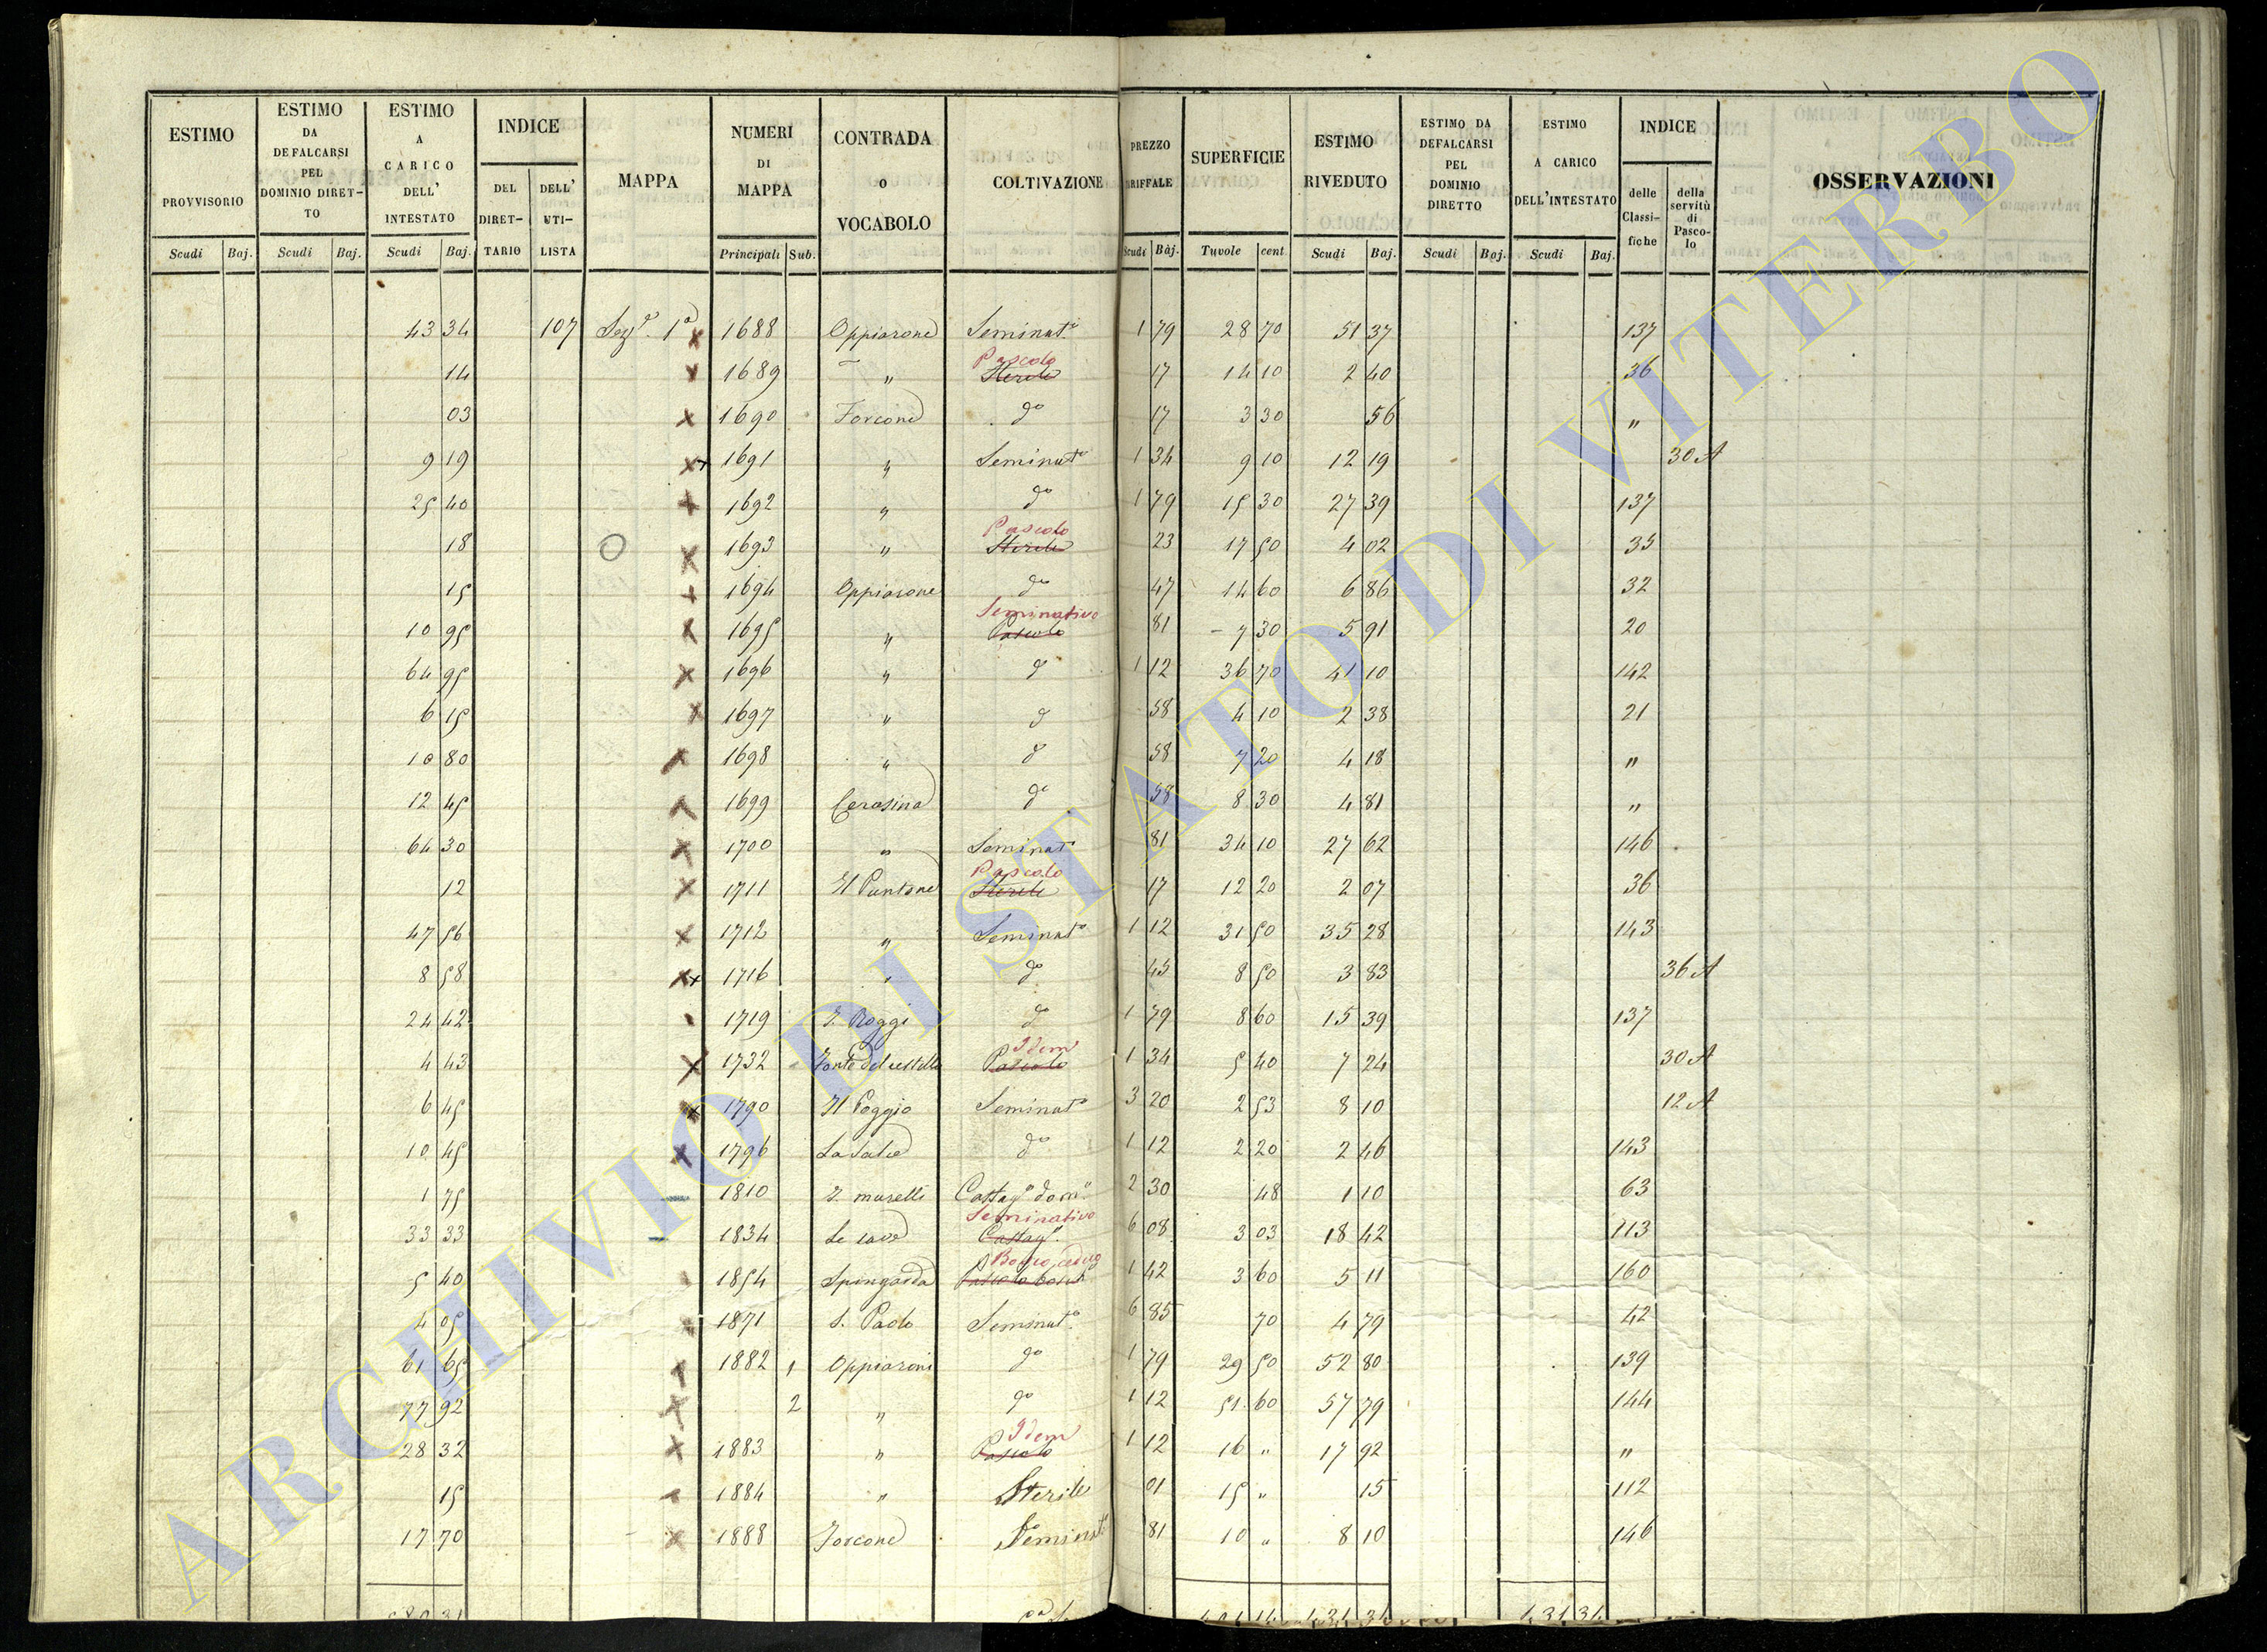 ESTIMO PROVVISORIO Scudi Baj. ESTIMO DA DEFALCARSI PEL DOMINIO DIRETTO Scudi Baj. ESTIMO A CARICO DELL' INTESTATO Scudi Baj. INDICE DEL DIRETTARIO DELL' UTILISTA MAPPA NUMERI DI MAPPA Principali Sub. CONTRADA O VOCABOLO COLTIVAZIONE PREZZO TARIFFALE Scudi Baj. SUPERFICIE Tavole cent ESTIMO RIVEDUTO Scudi Baj. ESTIMO DA DEFALCARSI PEL DOMINIO DIRETTO Scudi Baj. ESTIMO A CARICO DELL'INTESTATO Scudi Baj. INDICE delle Classifiche della servitù di Pascolo OSSERVAZIONI
43 34 107 Sez.e 1a 1688 Oppiarone Seminato 1 79 28 70 51 37 137
14 1689 " Pascolo Sterile 17 14 10 2 40 36
03 1690 Forcone do 17 3 30 56 "
9 19 1691 " Seminato 1 34 9 10 12 19 30 A
25 40 1692 " do 1 79 15 30 27 39 137
18 1693 " Pascolo Sterile 23 17 50 4 02 35
15 1694 Oppiarone do 47 14 60 6 86 32
10 95 1695 " Seminativo Pascolo 81 7 30 5 91 20
64 95 1696 " do 1 12 36 70 41 10 142
6 15 1697 " do 58 4 10 2 38 21
10 80 1698 " do 58 7 20 4 18 "
12 45 1699 Cerasina do 58 8 30 4 81 "
64 30 1700 " Seminato 81 34 10 27 62 146
12 1711 Il Puntone Pascolo Sterile 17 12 20 2 07 36
47 56 1712 " Seminato 1 12 31 50 35 28 143
8 58 1716 " do 45 8 50 3 83 36 A
24 42 1719 I. Poggi do 1 79 8 60 15 39 137
4 43 1732 Idem Pascolo 1 34 5 40 7 24 30 A
6 45 1790 Il Poggio Seminato 3 20 2 53 8 10 12 A
10 45 1796 do 1 12 2 20 2 46 143
1 75 1810 I. murelli Castag.o dom.o 2 30 48 1 10 63
33 33 1834 Le cave Seminativo Castag.o 6 08 3 03 18 42 113
5 40 1854 Spingarda Bosco ceduo Pascolo bosc.o 1 42 3 60 5 11 160
4 05 1871 S. Paolo Seminat.o 6 85 70 4 79 42
61 65 1882 1 Oppiaroni do 1 79 29 50 52 80 139
77 92 2 " do 1 12 51 60 57 79 144
28 32 1883 " Idem Pascolo 1 12 16 " 17 92 "
15 1884 " Sterile 01 15 " 15 112
17 70 1888 Forcone Seminat.o 81 10 " 8 10 146
ARCHIVIO DI STATO DI VITERBO